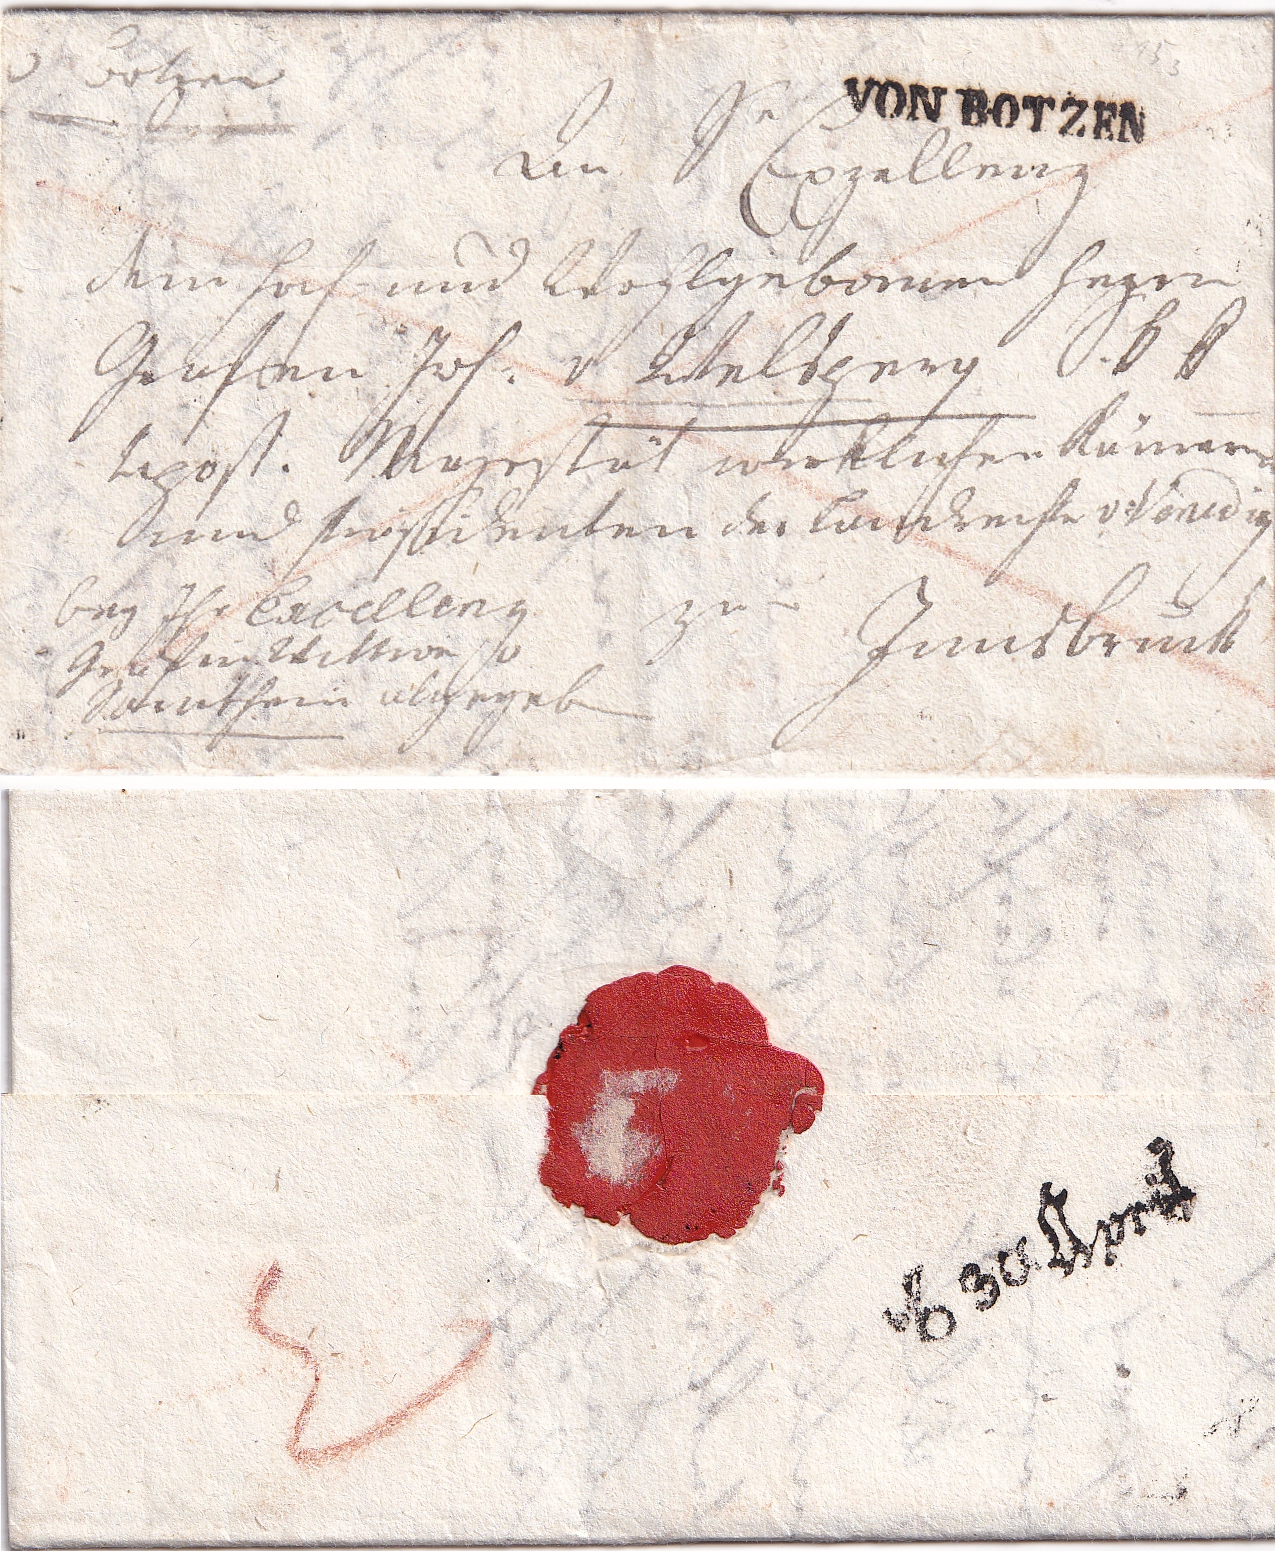 v Botzen
VON BOTZEN
An Sr
Exzellenz
dem hoch und Wohlgebornen Herrn
Grafen Joh. v Welsperg S. k k
Apost. Majestät wirklichen Kämmerer
und Präsidenten der Landrechte v Venedig
bey Ihr Excellenz
zu Innsbruck
Gräfin Wittwe v
abzugeb
30. April